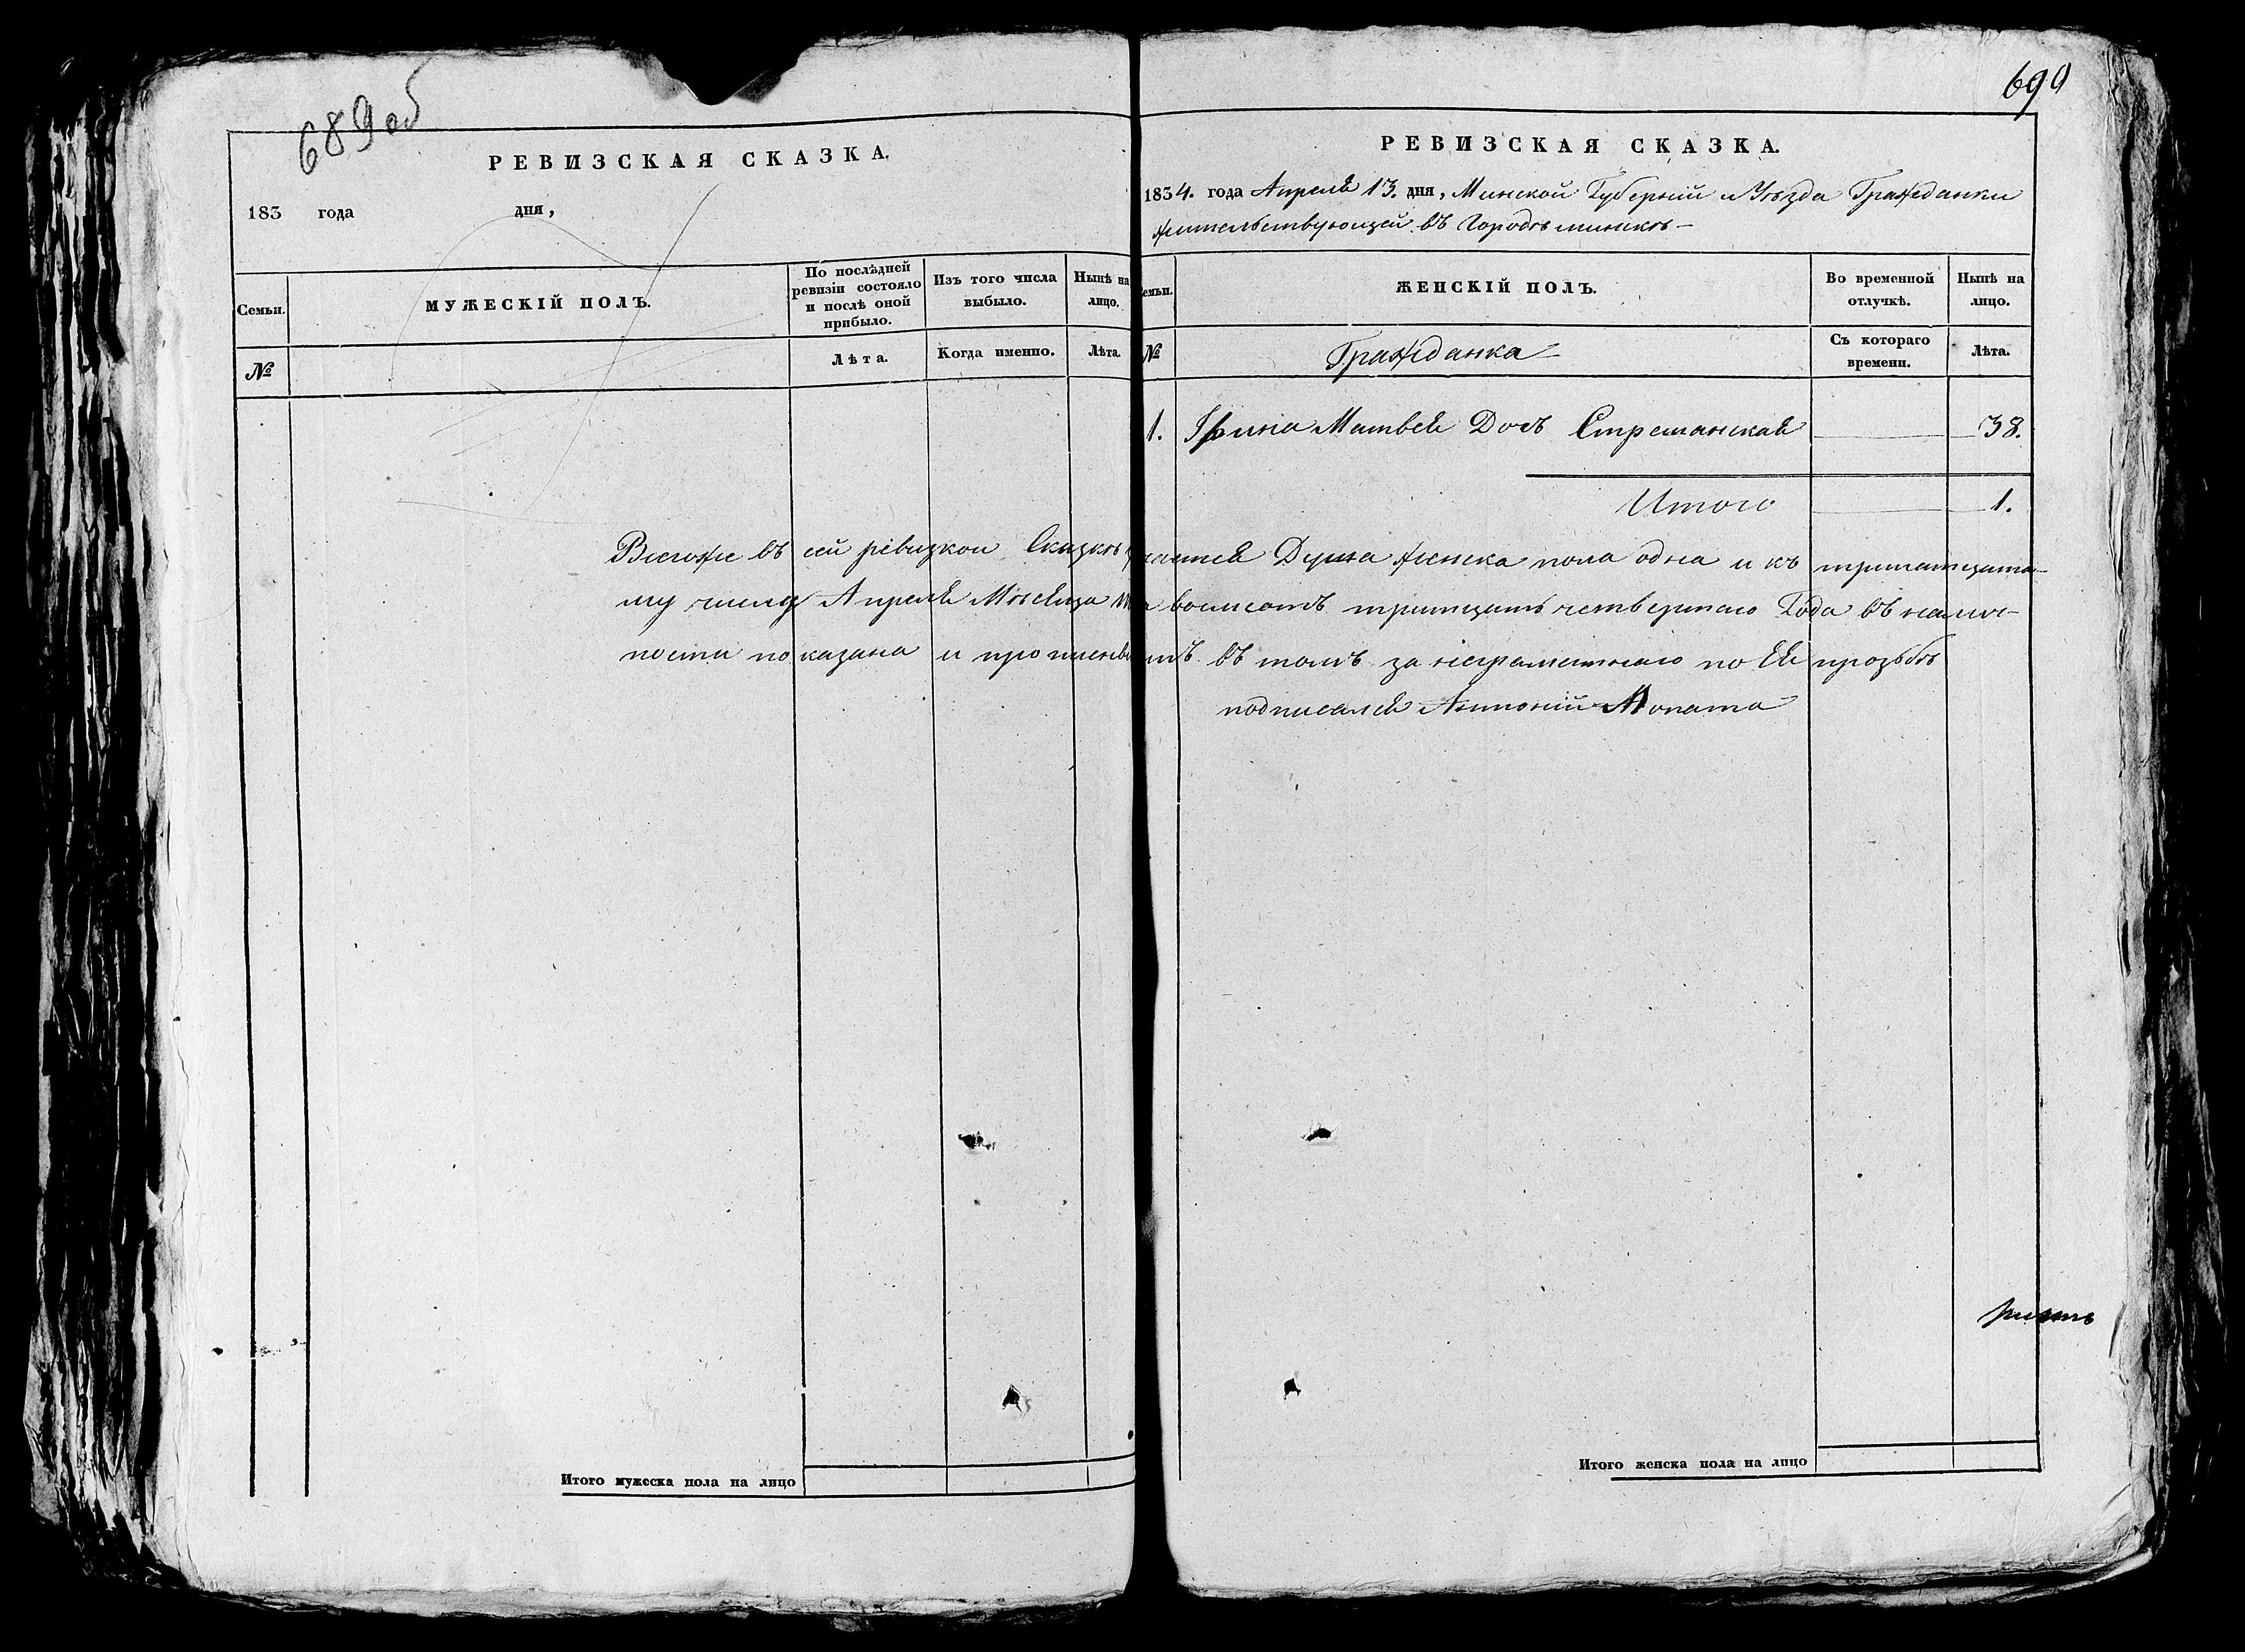 689 об
РЕВИЗСКАЯ СКАЗКА.
183 года дня,
Семьи. МУЖЕСКІЙ ПОЛЪ. По послѣдней ревизіи состояло и послѣ оной прибыло. Изъ того числа выбыло. Нынѣ на лицо.
№ Лѣта. Когда именно. Лѣта.
690
РЕВИЗСКАЯ СКАЗКА.
1834. года Апреля 13. дня, Минской Губерніи и Уѣзда Гражданки
жительствующей въ Городѣ минскѣ —
Семьи. ЖЕНСКІЙ ПОЛЪ. Во временной отлучкѣ. Нынѣ на лицо.
№ Гражданка Съ котораго времени. Лѣта.
1. Матвея Дочь 38.
Итого 1.
Всегоже въ сей ревизкой Сказкѣ Душа женска пола одна и къ тринатцато-
му числу Апреля Мѣсяца восмсотъ тритцать четвертаго Года въ налич-
ности показана и въ томъ за неграмотнаго по Ея прозьбѣ
подписался Антоній
Итого мужеска пола на лицо
Итого женска пола на лицо